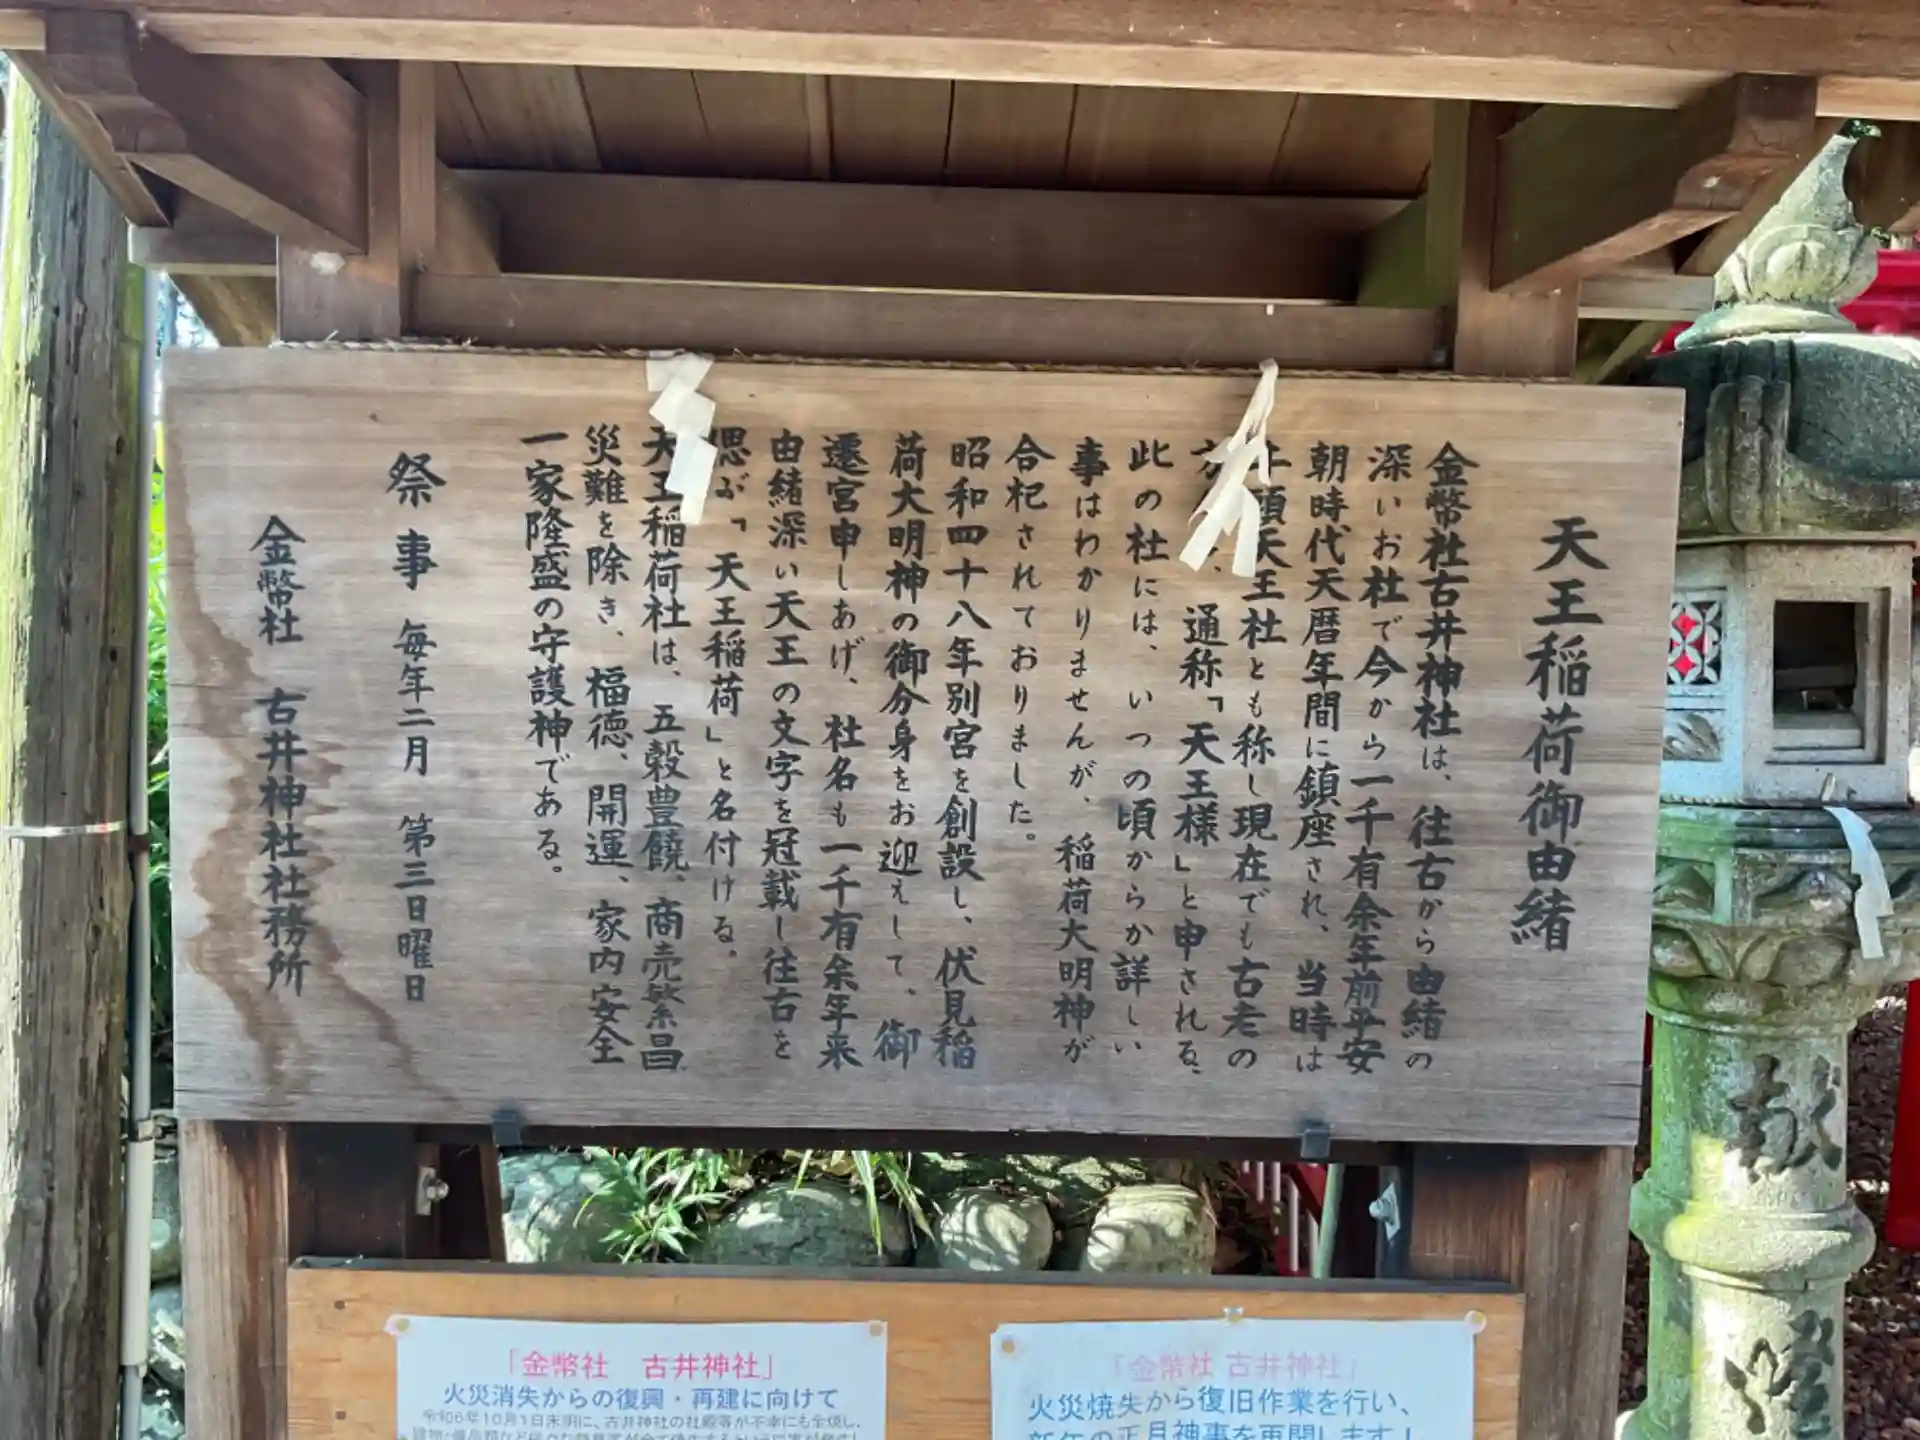 天王稲荷御由緒
金幣社古井神社は、往古から由緒の
深いお社で今から一千有余年前平安
朝時代天暦年間に鎮座され、当時は
頭天王社とも称し現在でも古老の
通称「天王様」と申される、
此の社には、いつの頃からか詳しい
事はわかりませんが、稲荷大明神が
合祀されておりました。
昭和四十八年別宮を創設し、伏見稲
荷大明神の御分身をお迎えして、御
遷宮申しあげ、社名も一千有余年来
由緒深い天王の文字を冠載し往古を
偲ぶ「天王稲荷」と名付ける。
天王稲荷社は、五穀豊饒、商売繁昌
災難を除き、福徳、開運、家内安全
一家隆盛の守護神である。
祭事 毎年二月 第三日曜日
金幣社 古井神社社務所
「金幣社 古井神社」
火災消失からの復興・再建に向けて
令和6年10月1日未明に、古井神社の社殿等が不幸にも全焼し、
「金幣社 古井神社」
火災焼失から復旧作業を行い、
新年の正月神事を再開します！
献